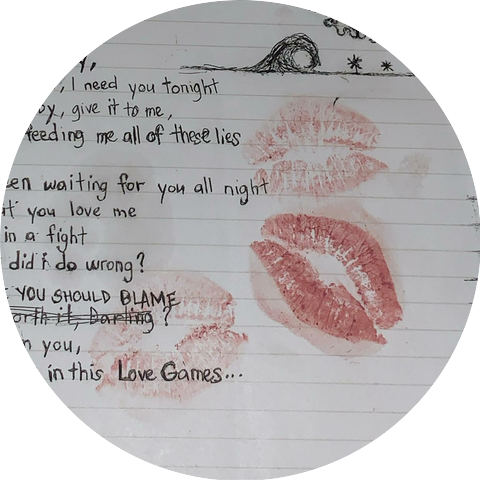 I need you tonight
give it to me,
feeding me all of these lies
waiting for you all night
you love me
in a fight
did i do wrong?
YOU SHOULD BLAME
it, Darling ?
you,
in this Love Games...